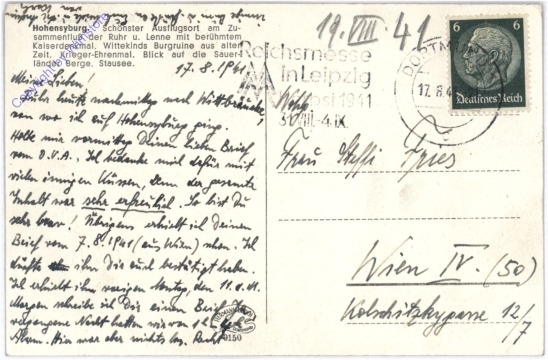 Hohensyburg. Schönster Ausflugsort am Zu-
sammenfluß der Ruhr u. Lenne mit berühmtem
Kaiserdenkmal, Wittekinds Burgruine aus alter
Zeit. Krieger-Ehrenmal. Blick auf die Sauer-
länder Berge. Stausee.
17.8.1941
Meine Lieben!
heute nachmittag nach
von wo ich auf Hohensyburg ging.
Holte mir vormittag Deinen lieben Brief
vom D.V.A. Ich bedanke mich dafür mit
vielen innigen Küssen, denn der gesamte
Inhalt war sehr erfreulich. So bist Du
sehr brav! Übrigens erhielt ich Deinen
Brief vom 7.8.1941 (aus Wien) schon. Ich
dürfte ihn Dir auch bestätigt haben.
Ich erhielt ihn vorigen Montag, den 11.8.41.
Morgen schreibe ich Dir einen Brief.
vergangene Nacht hatten wir von 1h
Alarm. Hier war aber nichts los.
19.VIII.41
Reichsmesse
in Leipzig
1941
31.VIII.-4.IX.
DORTMUND
17.8.41
6
6
Deutsches Reich
Frau Steffi Fries
Wien IV. (50)
Kolschitzkygasse 12/7
0150
Copyright